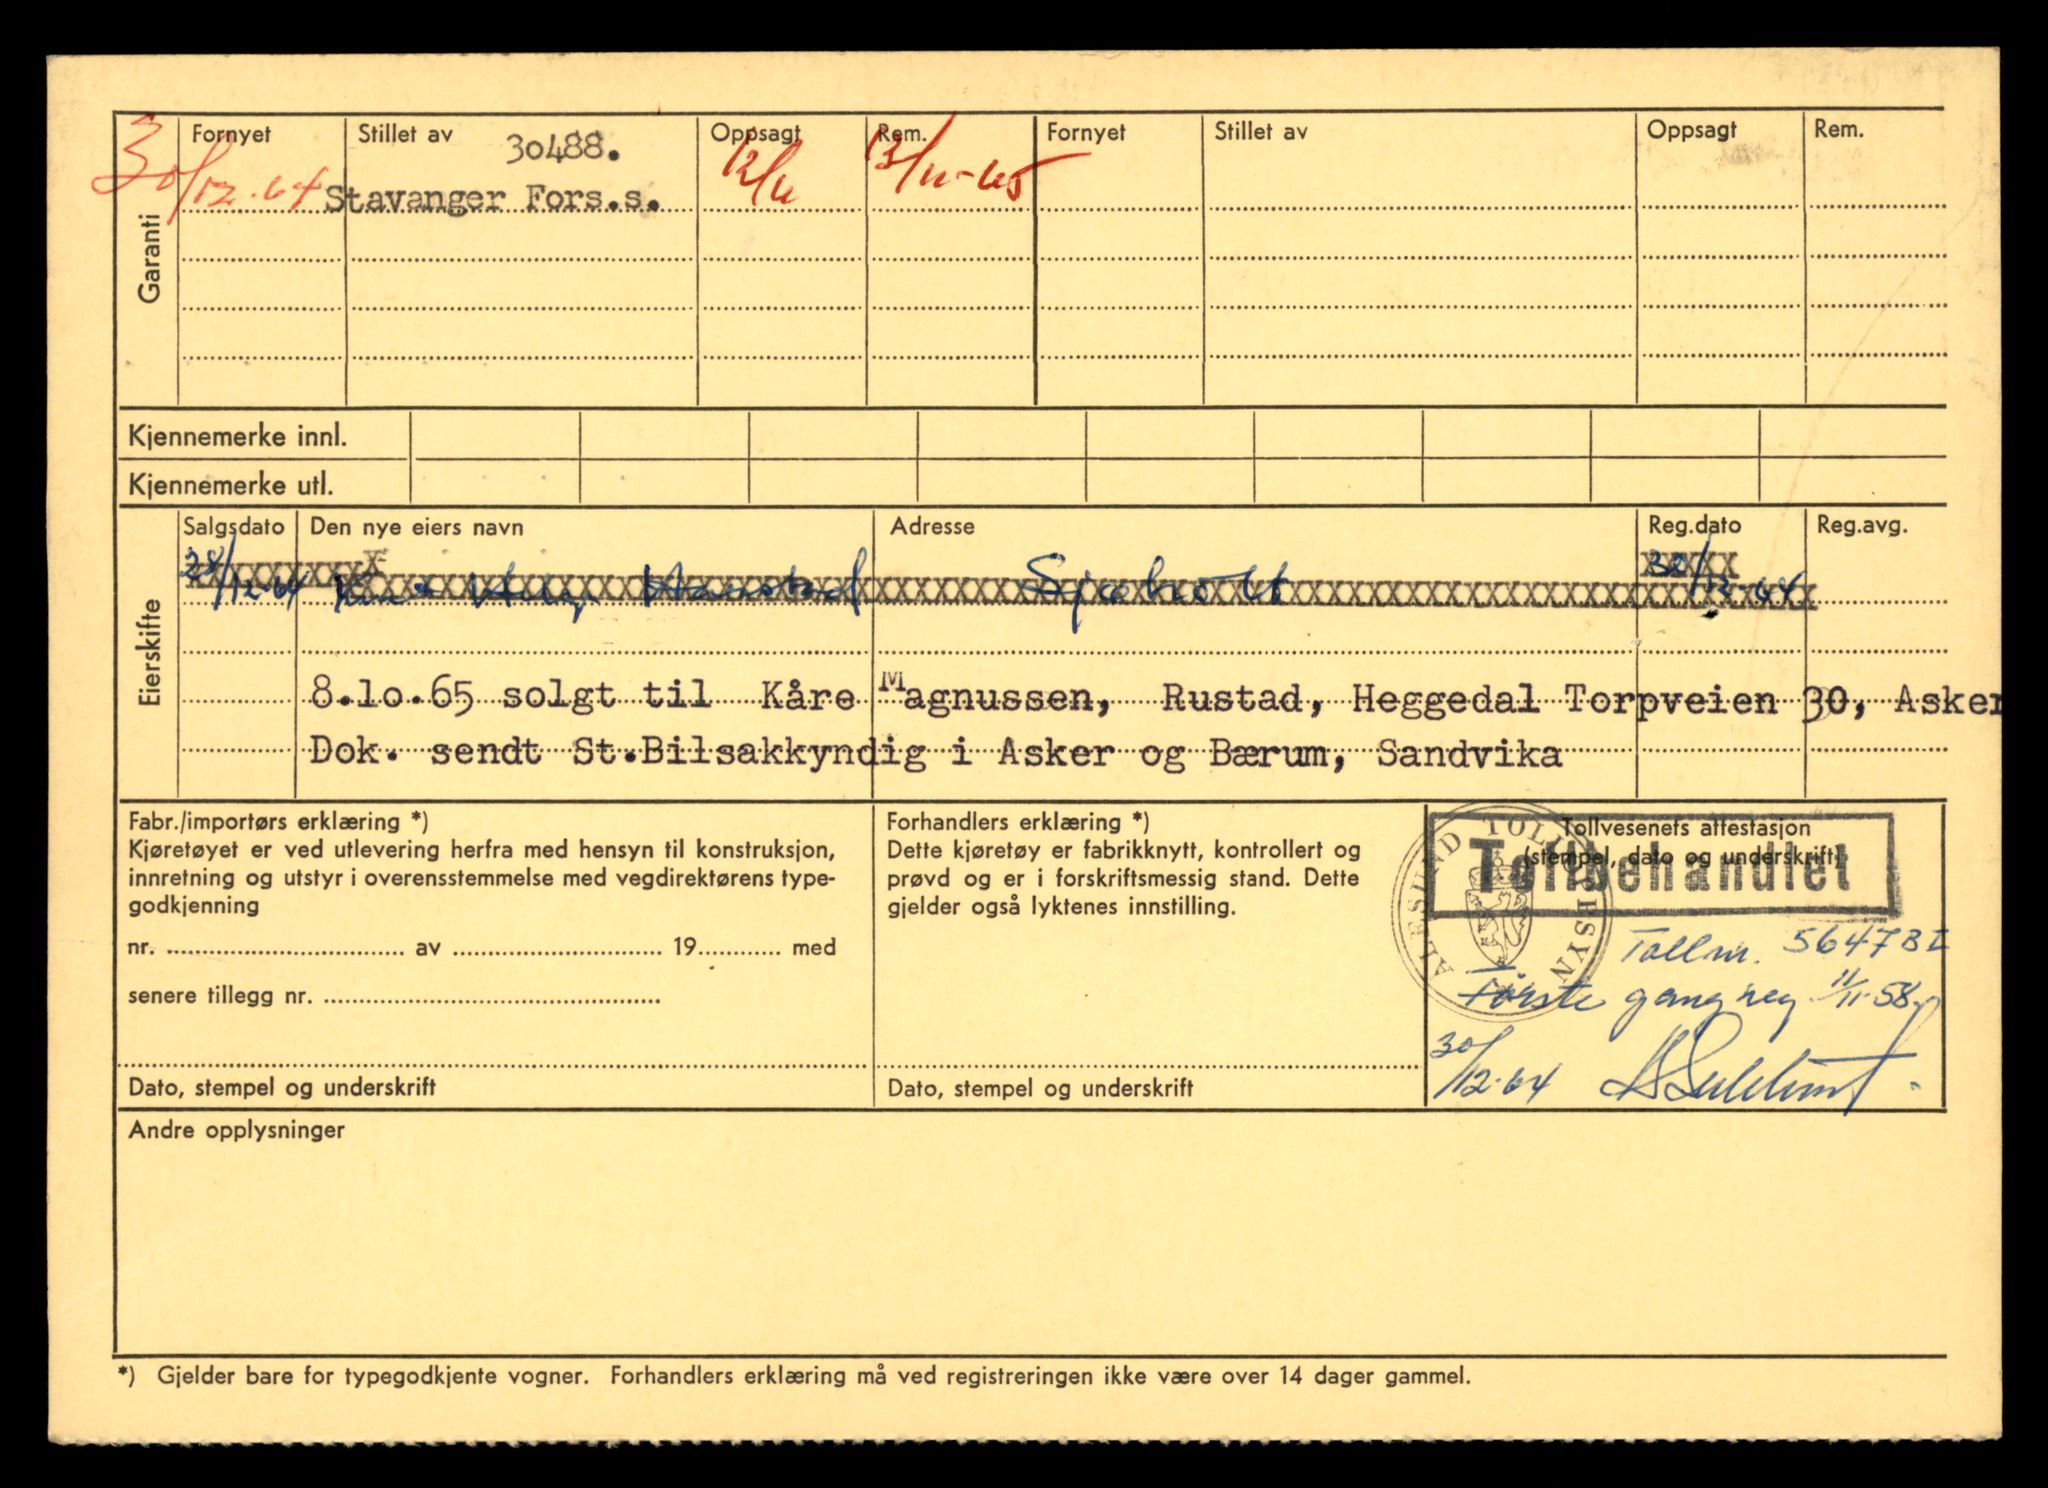 Garanti
Fornyet Stillet av Oppsagt Rem. Fornyet Stillet av Oppsagt Rem.
30488.
30/12.64 Stavanger Fors.s. 12/11 13/11-65
Kjennemerke innl.
Kjennemerke utl.
Eierskifte
Salgsdato Den nye eiers navn Adresse Reg.dato Reg.avg.
28/12-64 Sjøholt 30/12-64
8.10.65 solgt til Kåre Magnussen, Rustad, Heggedal Torpveien 30, Asker
Dok. sendt St.Bilsakkyndig i Asker og Bærum, Sandvika
Fabr./importørs erklæring *)
Kjøretøyet er ved utlevering herfra med hensyn til konstruksjon,
innretning og utstyr i overensstemmelse med vegdirektørens type-
godkjenning
nr. av 19 med
senere tillegg nr.
Dato, stempel og underskrift
Forhandlers erklæring *)
Dette kjøretøy er fabrikknytt, kontrollert og
prøvd og er i forskriftsmessig stand. Dette
gjelder også lyktenes innstilling.
Dato, stempel og underskrift
Tollvesenets attestasjon
(stempel, dato og underskrift)
Tollbehandlet
ÅLESUND TOLLOPPSYN
Tollnr. 56473 I
Første gang reg 11/11-58
30/12.64
Andre opplysninger
*) Gjelder bare for typegodkjente vogner. Forhandlers erklæring må ved registreringen ikke være over 14 dager gammel.